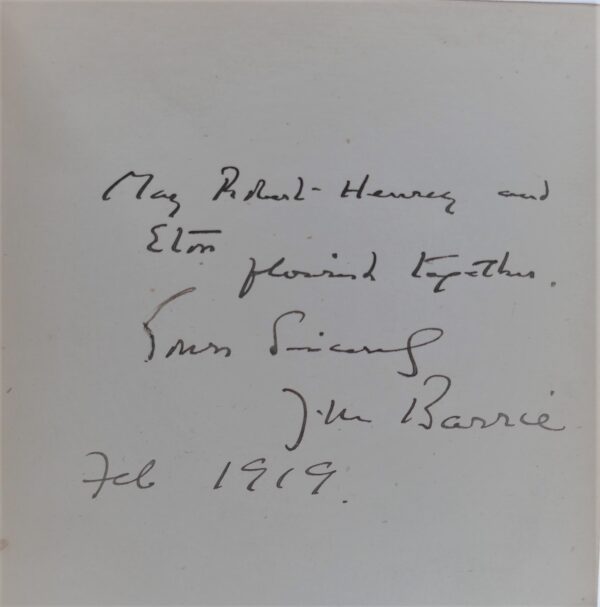 May Robert-Henrey and
Eton
flourish together.
Yours Sincerely
J.M. Barrie
Feb 1919.